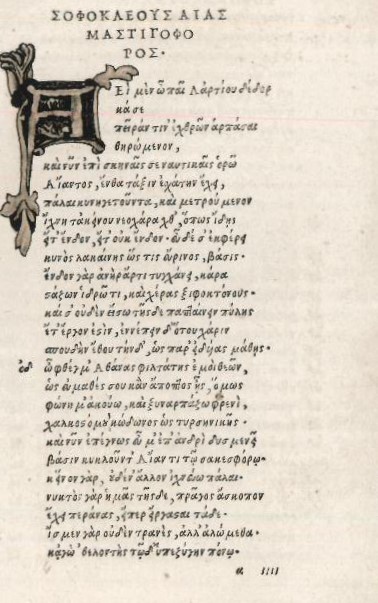 ΣΟΦΟΚΛΕΟΥΣ ΑΙΑΣ
ΜΑΣΤΙΓΟΦΟ
ΡΟΣ.
Ἀεὶ μὲν ὦ παῖ Λαρτίου δέδορ
κά σε
πεῖράν τιν' ἐχθρῶν ἁρπάσαι
θηρώμενον,
καὶ νῦν ἐπὶ σκηναῖς σε ναυτικαῖς ὁρῶ
Αἴαντος, ἔνθα τάξιν ἐσχάτην ἔχει,
πάλαι κυνηγετοῦντα, καὶ μετρούμενον
ἴχνη τὰ κείνου νεοχάραχθ', ὅπως ἴδῃς
εἴτ' ἔνδον, εἴτ' οὐκ ἔνδον· εὖ δέ σ' ἐκφέρει
κυνὸς λακαίνης ὥς τις εὔρινος, βάσις·
ἔνδον γὰρ ἁνὴρ ἄρτι τυγχάνει, κάρα
στάζων ἱδρῶτι, καὶ χέρας ξιφοκτόνους·
καί σ' οὐδὲν εἴσω τῆσδε παπταίνειν πύλης
ἔτ' ἔργον ἐστίν, ἐννέπειν δ' ὅτου χάριν
σπουδὴν ἔθου τήνδ', ὡς παρ' εἰδυίας μάθῃς·
ὀδ ὦ φθέγμ' Ἀθάνας φιλτάτης ἐμοὶ θεῶν,
ὡς εὐμαθές σου κἂν ἄποπτος ᾖς, ὅμως
φώνημ' ἀκούω, καὶ ξυναρπάζω φρενὶ,
χαλκοστόμου κώδωνος ὡς τυρσηνικῆς·
καὶ νῦν ἐπέγνως εὖ μ' ἐπ' ἀνδρὶ δυσμενεῖ
βάσιν κυκλοῦντ' Αἴαντι τῷ σακεσφόρῳ·
κεῖνον γὰρ, οὐδέν' ἄλλον ἰχνεύω πάλαι·
νυκτὸς γὰρ ἡμᾶς τῆσδε, πρᾶγος ἄσκοπον
ἔχει περάνας, εἴπερ εἴργασται τάδε·
ἴσμεν γὰρ οὐδὲν τρανὲς, ἀλλ' ἀλώμεθα·
κἀγὼ θελοντὴς τῷδ' ὑπεζύγην πόνῳ·
α IIII